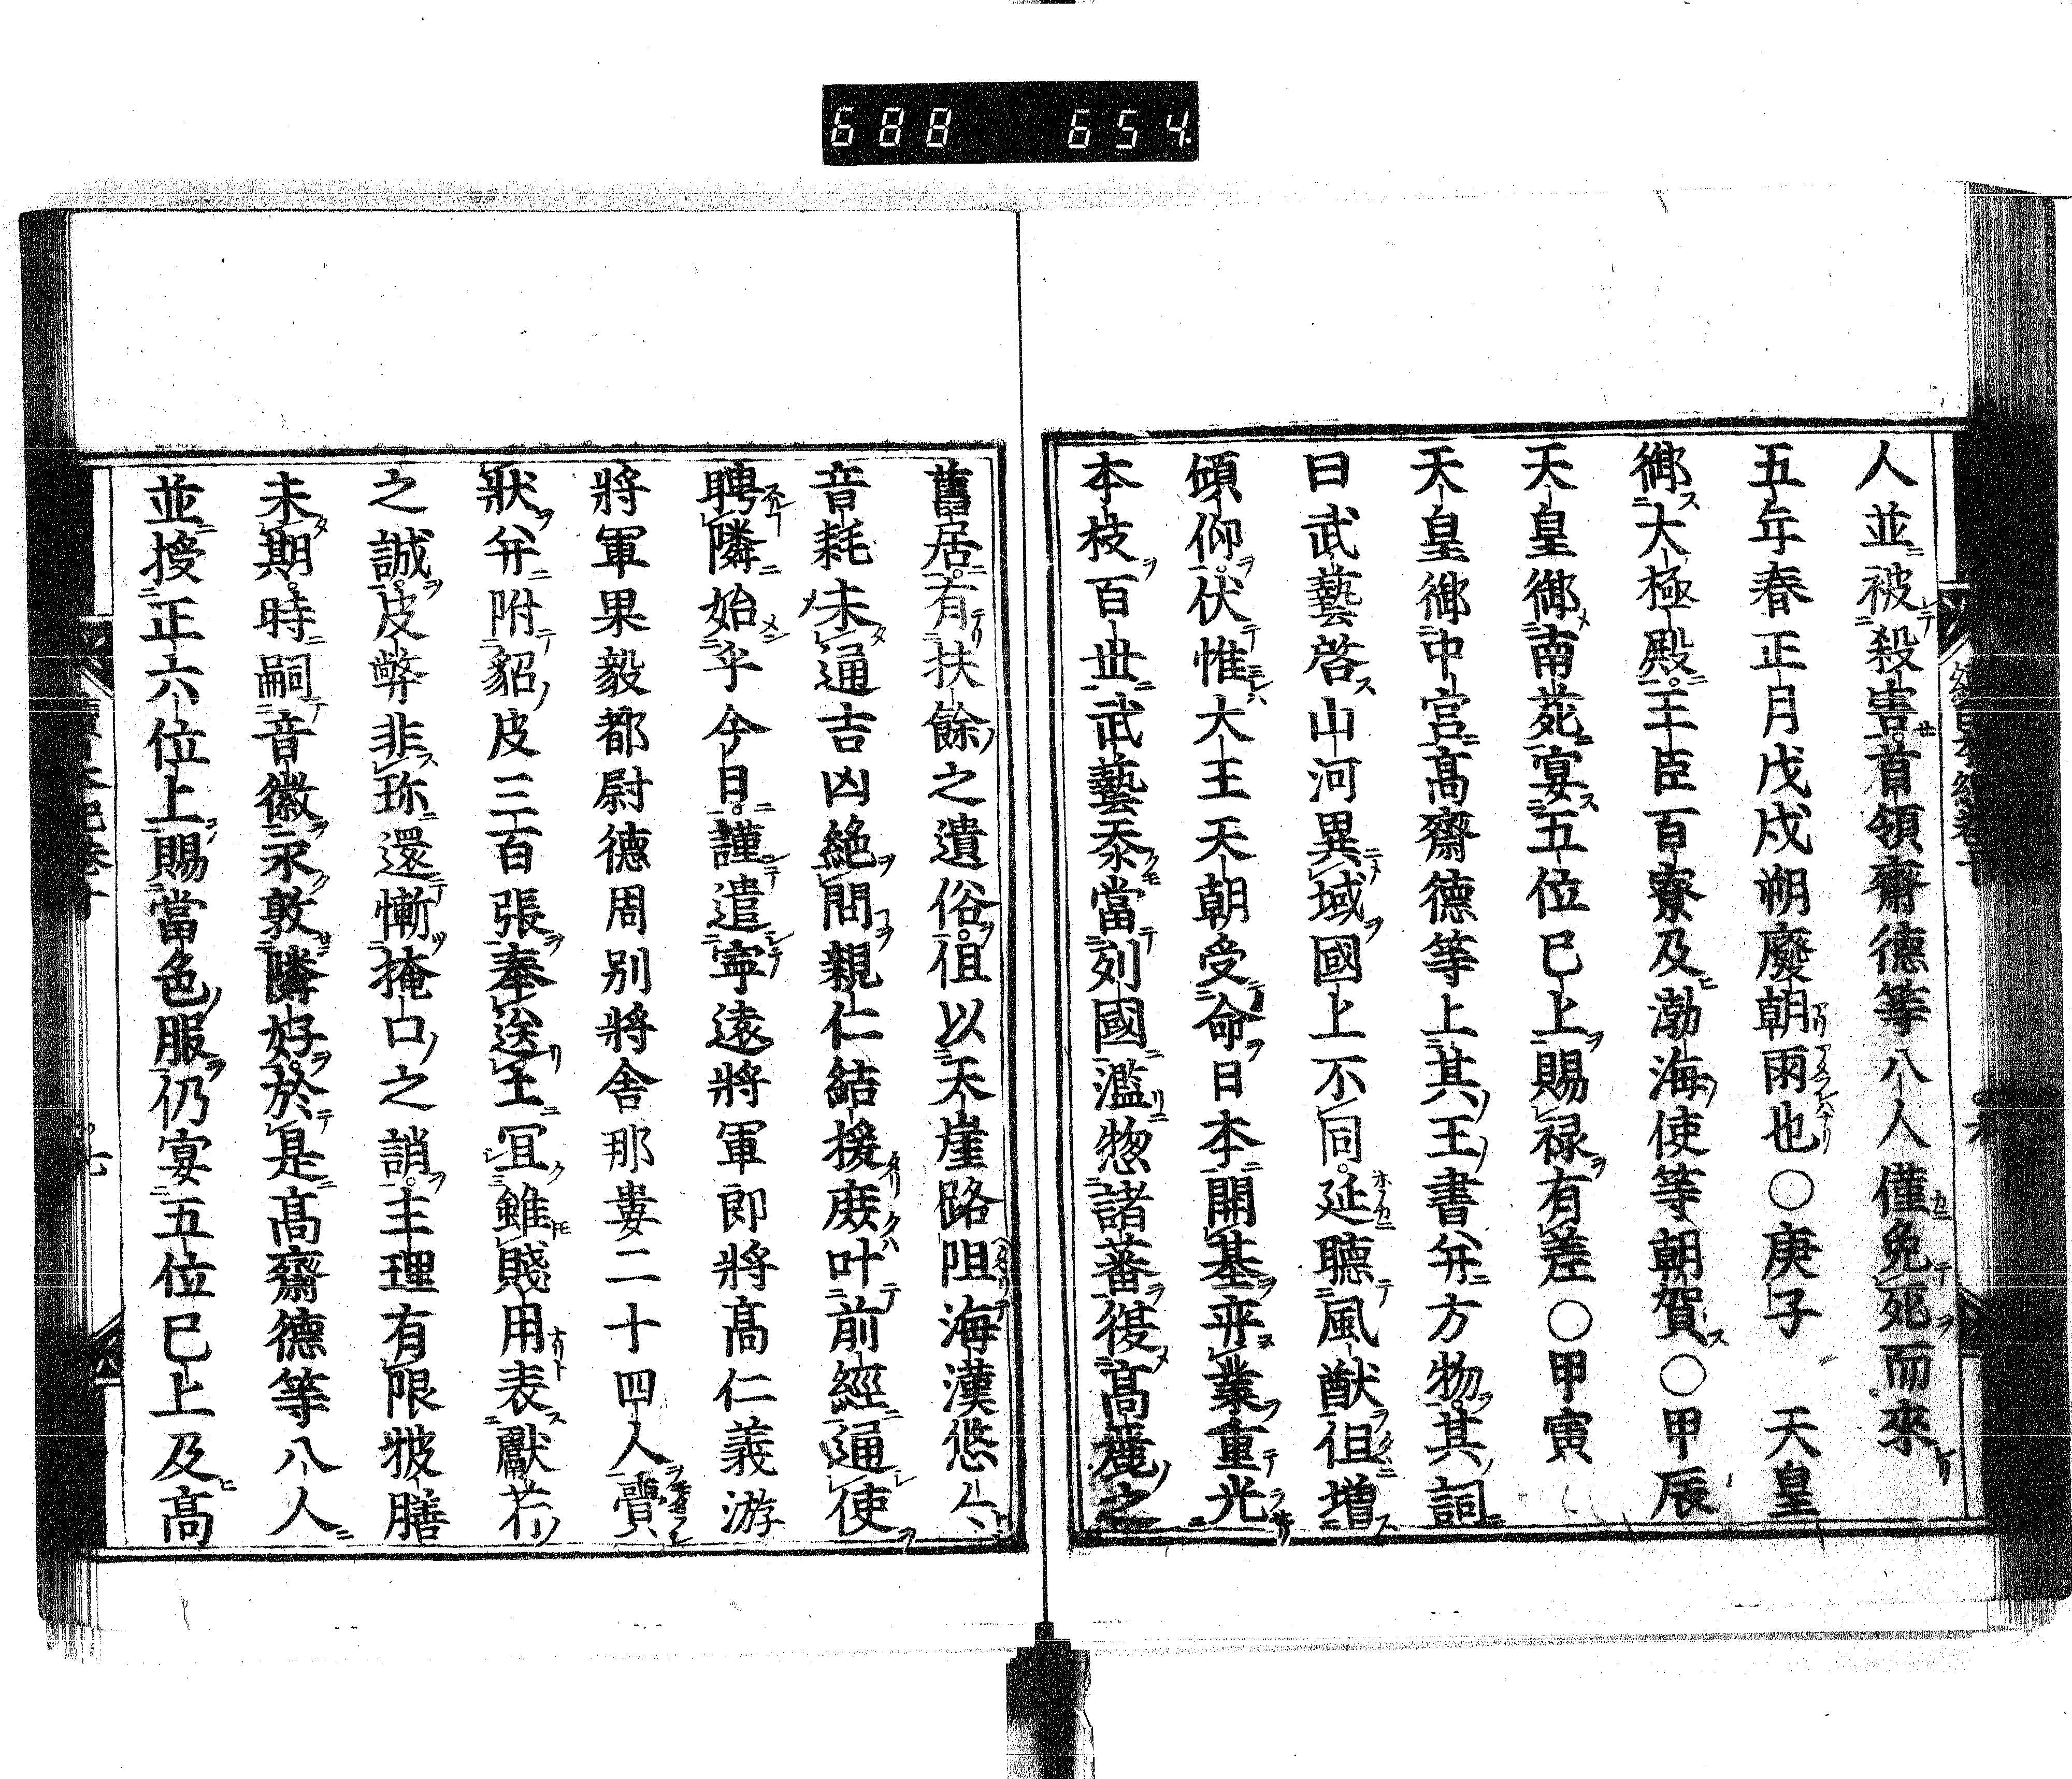 688 654
人並被殺害首領齋德等八人僅免死而來
五年春正月戊戌朔廢朝雨也〇庚子　天皇
御大極殿王臣百寮及渤海使等朝賀〇甲辰
天皇御南苑宴五位已上賜禄有差〇甲寅
天皇御中宮髙齋德等上其王書并方物其詞
曰武藝啓山河異域國上不同延聽風猷但増
傾仰伏惟大王天朝受命日本開基奕業重光
本枝百世武藝忝當列國濫惣諸蕃復髙麗之
舊居有扶餘之遺俗但以天崖路阻海漢悠々
音耗未通吉凶絶問親仁結援庶叶前經通使
聘隣始乎今日謹遣寧遠將軍郎將髙仁義游
將軍果毅都尉德周别將舍那婁二十四人賷
狀并附貂皮三百張奉送土冝雖賤用表獻芹
之誠皮幣非珎還慚掩口之誚主理有限披膳
未期時嗣音徽永敦隣好於是髙齋德等八人
並授正六位上賜當色服仍宴五位已上及髙